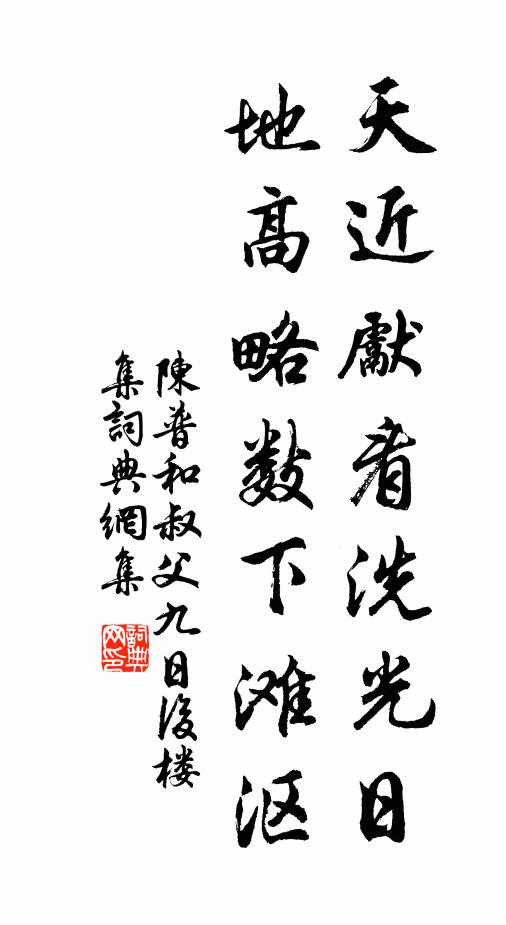 天近獻看洗光日
地高略数下滩沤
陳普和叔父九日後楼
集詞典網集
詞典网印